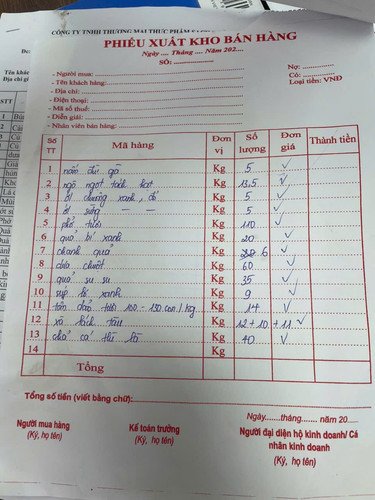 CÔNG TY TNHH THƯƠNG MẠI THỰC PHẨM
PHIẾU XUẤT KHO BÁN HÀNG
Ngày .... Tháng .... Năm 202....
SỐ:
- Người mua:
- Tên khách hàng:
- Địa chỉ:
- Điện thoại:
- Mã số thuế:
- Diễn giải:
- Nhân viên bán hàng:
Nợ:
Có:
Loại tiền: VNĐ
Số TT Mã hàng Đơn vị Số lượng Đơn giá Thành tiền
1 nấm đùi gà Kg 5 ✓
2 ngô ngọt tách hạt Kg 13,5 ✓
3 ớt chuông xanh, đỏ Kg 5 ✓
4 ớt sừng — — Kg 5 ✓
5 phở tươi Kg 110 ✓
6 quả bí xanh Kg 20 ✓
7 chanh quả Kg 6 ✓
8 dưa chuột Kg 60 ✓
9 quả su su Kg 35 ✓
10 súp lơ xanh Kg 9 ✓
11 tôm đảo tươi 100 - 130 con / kg Kg 14 ✓
12 xá tàu Kg 12 + 10 + 11 ✓
13 chả cá thì là Kg 40 ✓
14 Kg
Tổng
Tổng số tiền (viết bằng chữ):
Ngày......tháng....... năm 20.....
Người mua hàng
(Ký, họ tên)
Kế toán trưởng
(Ký, họ tên)
Người đại diện hộ kinh doanh/ Cá
nhân kinh doanh
(Ký, họ tên)